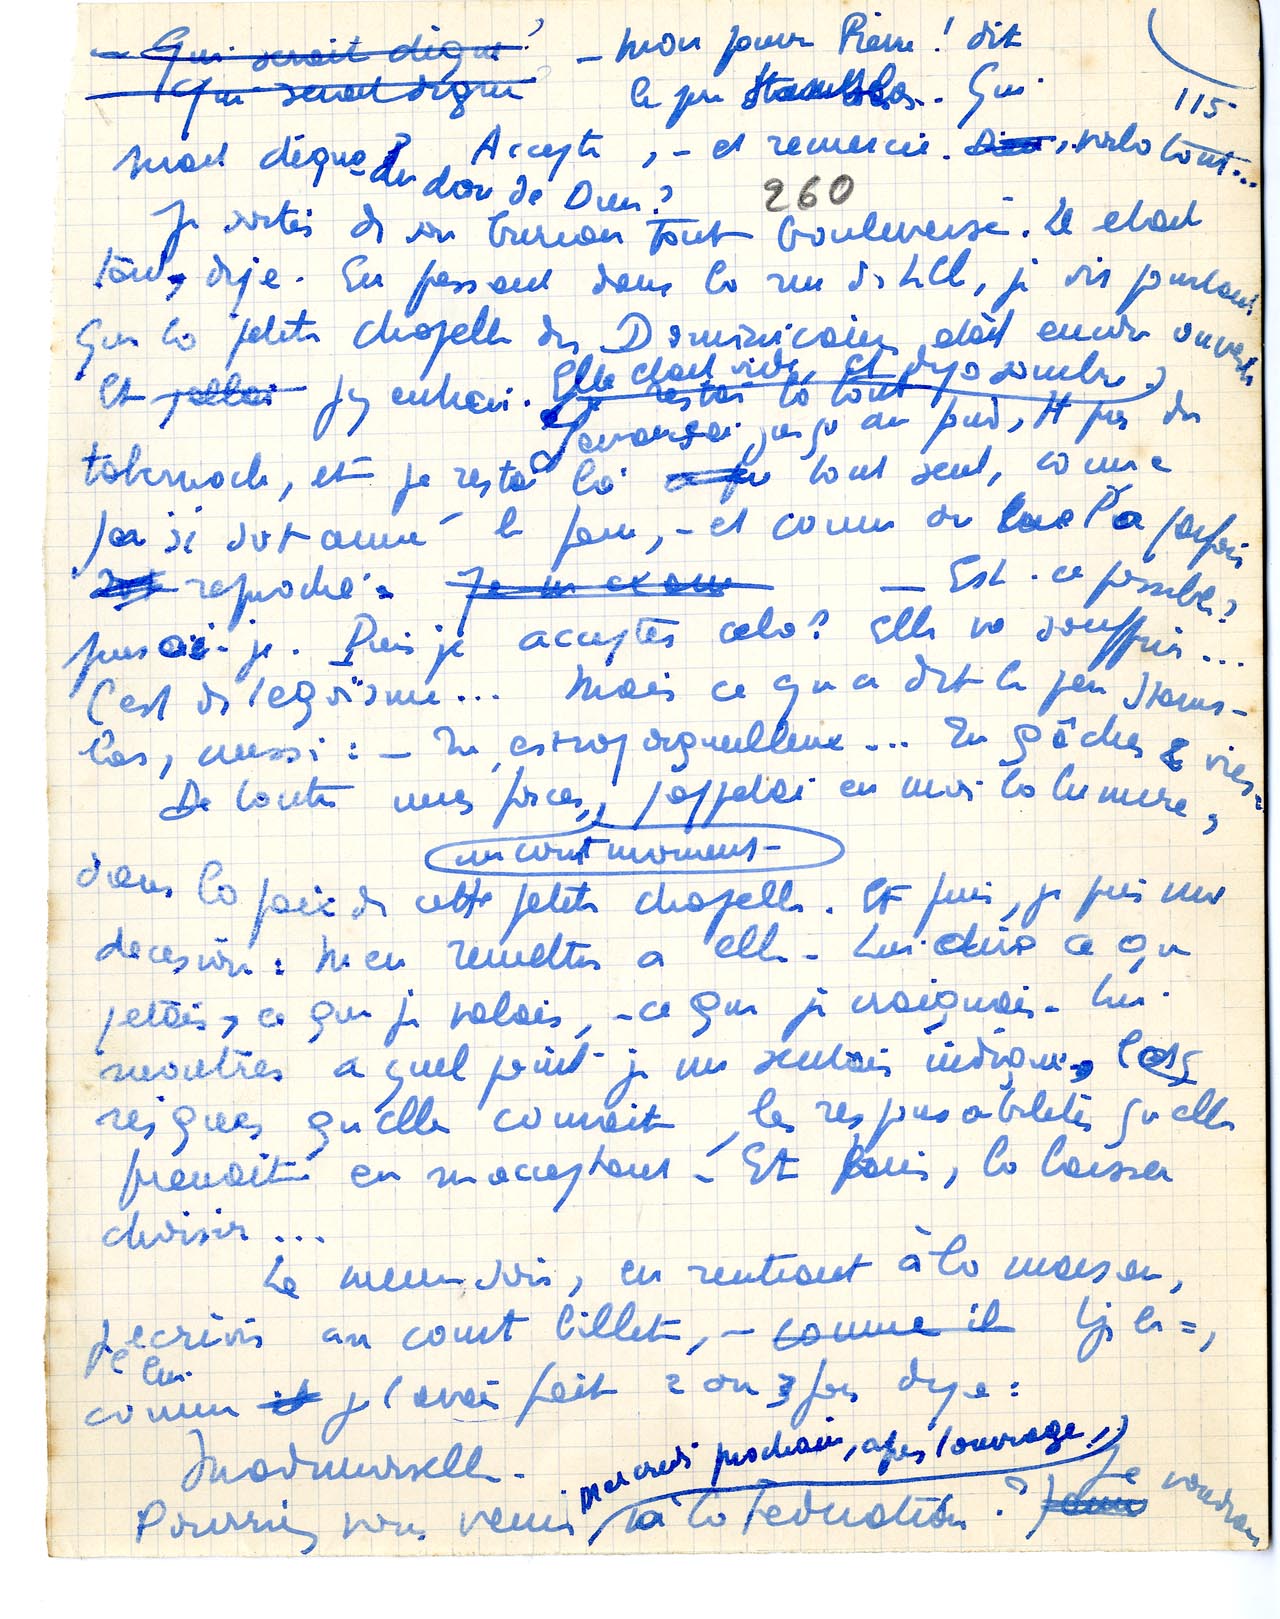 — Qui serait digne? — Mon pauvre Pierre ! dit
Qui serait digne le père Stanislas.. Qui
115
serait digne du don de Dieu? Accepte, – et remercie. Dieu, voilà tout...
260
Je sortis de son bureau tout bouleversé. Il était
tard, déjà. En passant dans la rue de Lille, je vis pourtant
que la petite chapelle des Dominicains était encore ouverte
Et j'allai j'y entrai. Elle était vide, et déjà sombre,
Je restai là tout
J'avançai jusqu'au pied, tt près du
tabernacle, et je restai là tout seul, comme
j'ai si svt aimé le faire, – et comme on me l'a parfois
reproché. Je m'exam — Est-ce possible?
pensai-je. Puis-je accepter cela? Elle va souffrir...
C'est de l'égoïsme... Mais ce qu'a dit le père Stanis-
las, aussi : – Tu es trop orgueilleux... Tu gâches 2 vies.
De toutes mes forces, j'appelai en moi la lumière,
un court moment
dans la paix de cette petite chapelle. Et puis, je pris une
décision : M'en remettre à elle – Lui dire ce que
j'étais, ce que je valais, – ce que je craignais – Lui
montrer à quel point je me sentais indigne, les
risques qu'elle courait, les responsabilités qu'elle
prenait en m'acceptant – Et puis, la laisser
choisir...
Le même soir, en rentrant à la maison,
j'écrivis un court billet, – comme il
je lui
comme il je l'avais fait 2 ou 3 fois déjà :
Mademoiselle –
mercredi prochain, après l'ouvrage,
Pourriez vous venir à la Fédération ? J'aurai Je voudrais